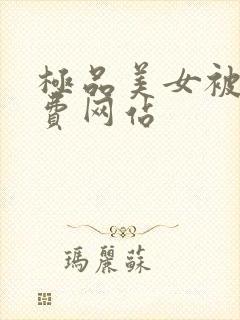 極品美女被
費网佔
瑪麗蘇